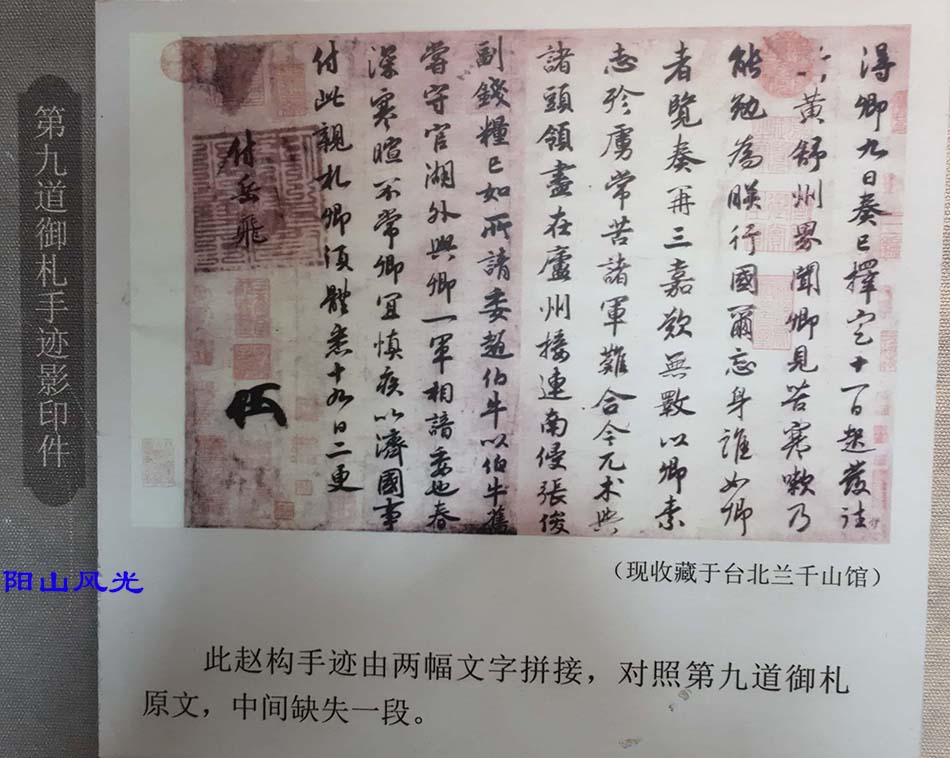 第九道御札手迹影印件
得卿九日奏已擇定十一日起發往
黃舒州界聞卿見苦寒嗽乃
能勉為朕行國爾忘身誰如卿
者覽奏再三嘉歎無斁以卿素
志殄虜常苦諸軍難合今兀术與
諸頭領盡在廬州接連南侵張俊
副錢糧已如所請委趙伯牛以伯牛舊
嘗守官湖外與卿一軍相諳委也春
深寒暄不常卿宜慎疾以濟國事
付此親札卿須體悉十九日二更
付岳飛
（现收藏于台北兰千山馆）
此赵构手迹由两幅文字拼接，对照第九道御札
原文，中间缺失一段。
阳山风光